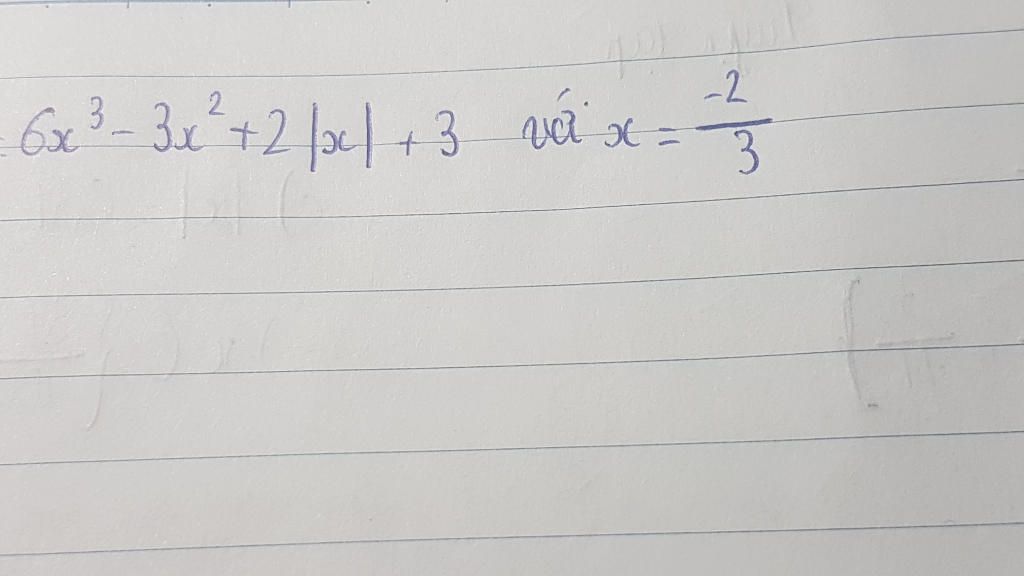 6x³ - 3x² + 2|x| + 3 với x = -2/3